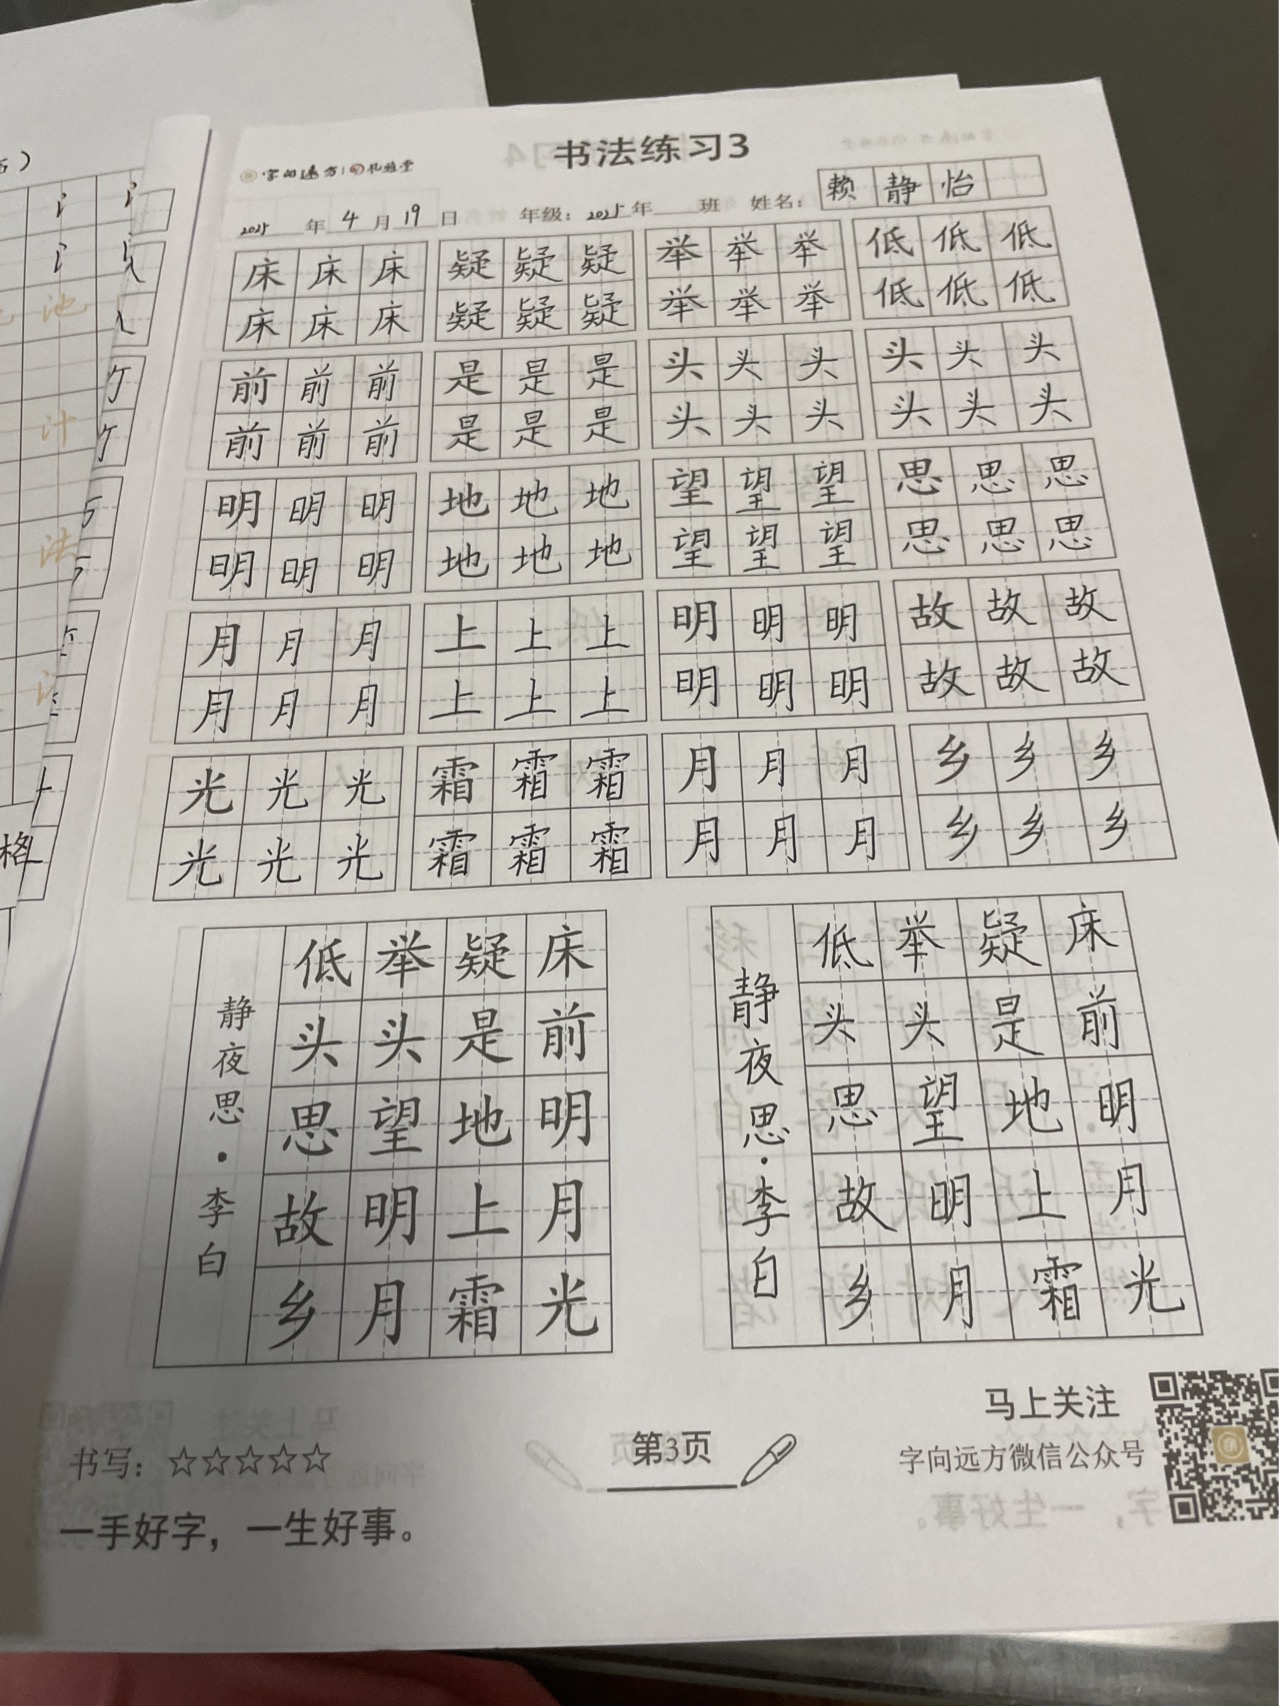 书法练习3
字向远方 礼雅堂
2025年4月19日 年级：2025年 班 姓名：赖静怡
床床床 疑疑疑 举举举 低低低
床床床 疑疑疑 举举举 低低低
前前前 是是是 头头头 头头头
前前前 是是是 头头头 头头头
明明明 地地地 望望望 思思思
明明明 地地地 望望望 思思思
月月月 上上上 明明明 故故故
月月月 上上上 明明明 故故故
光光光 霜霜霜 月月月 乡乡乡
光光光 霜霜霜 月月月 乡乡乡
床前明月光
疑是地上霜
举头望明月
低头思故乡
静夜思·李白
床前明月光
疑是地上霜
举头望明月
低头思故乡
静夜思·李白
书写：☆☆☆☆☆
一手好字，一生好事。
第3页
马上关注
字向远方微信公众号
池
计
法
格